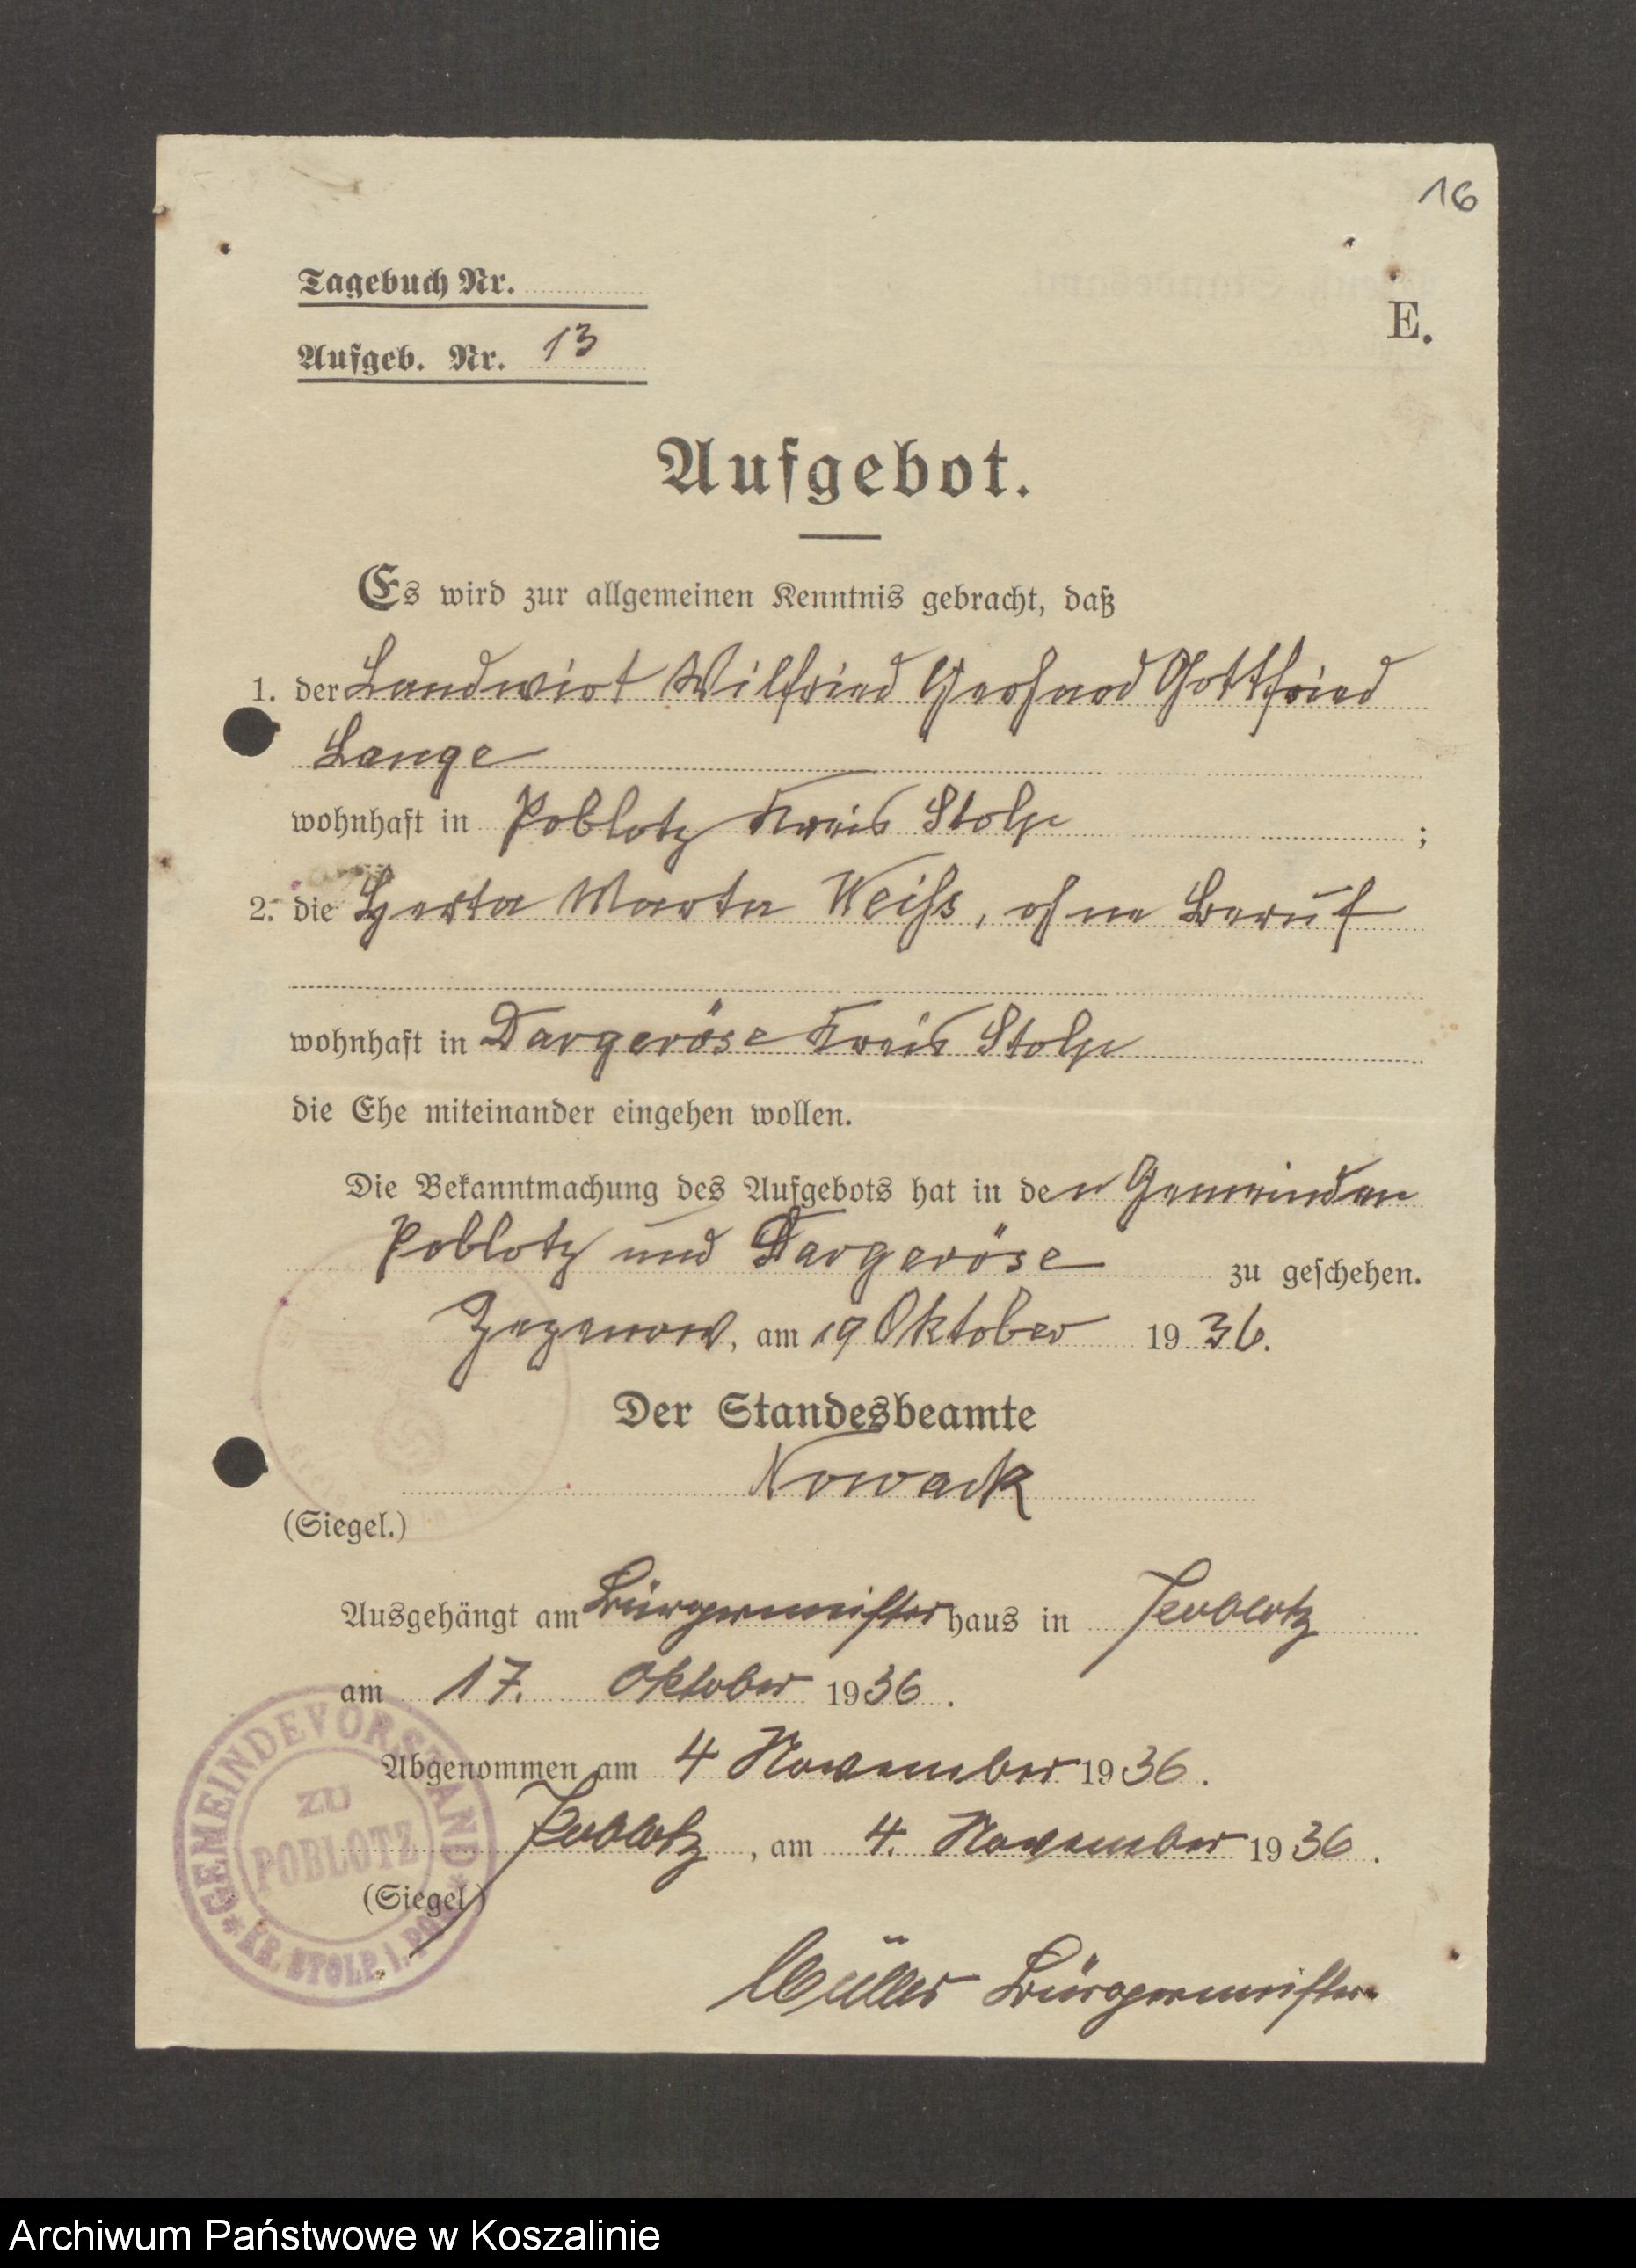 16
Tagebuch Nr.
E.
Aufgeb. Nr. 13
Aufgebot.
Es wird zur allgemeinen Kenntnis gebracht, daß
1. der Landwirt Wilfried Gerhard Gottfried
Lange
wohnhaft in Poblotz Kreis Stolp ;
2. die Herta Marta Weiss, ohne Beruf
wohnhaft in Dargeröse Kreis Stolp
die Ehe miteinander eingehen wollen.
Die Bekanntmachung des Aufgebots hat in den Gemeinden
Poblotz und Dargeröse zu geschehen.
Zezenow, am 19 Oktober 1936.
Der Standesbeamte
Nowack
(Siegel.)
Ausgehängt am Bürgermeisterhaus in Poblotz
am 17. Oktober 1936.
Abgenommen am 4 November 1936.
Poblotz, am 4. November 1936.
(Siegel)
GEMEINDEVORSTAND
ZU
POBLOTZ
* KR. STOLP i. POM. *
Müller Bürgermeister
Archiwum Państwowe w Koszalinie